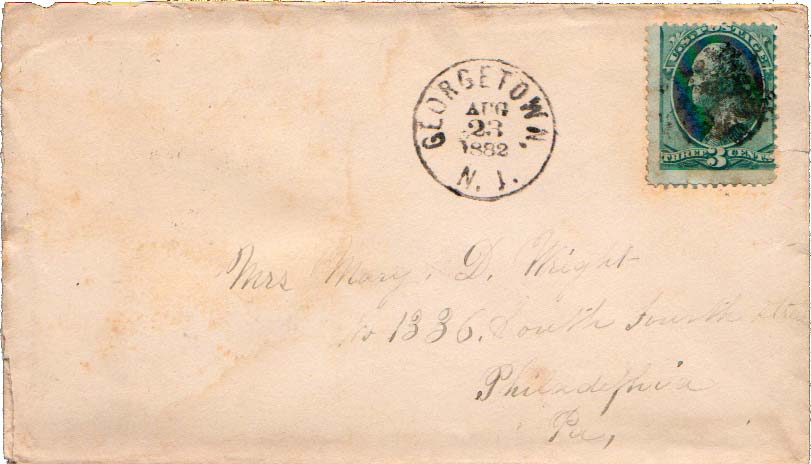 GEORGETOWN,
AUG
23
1882
N. J.
U.S. POSTAGE
THREE 3 CENTS
Mrs Mary. D. Wright
No 1336. South Fourth Street
Philadelphia
Pa,